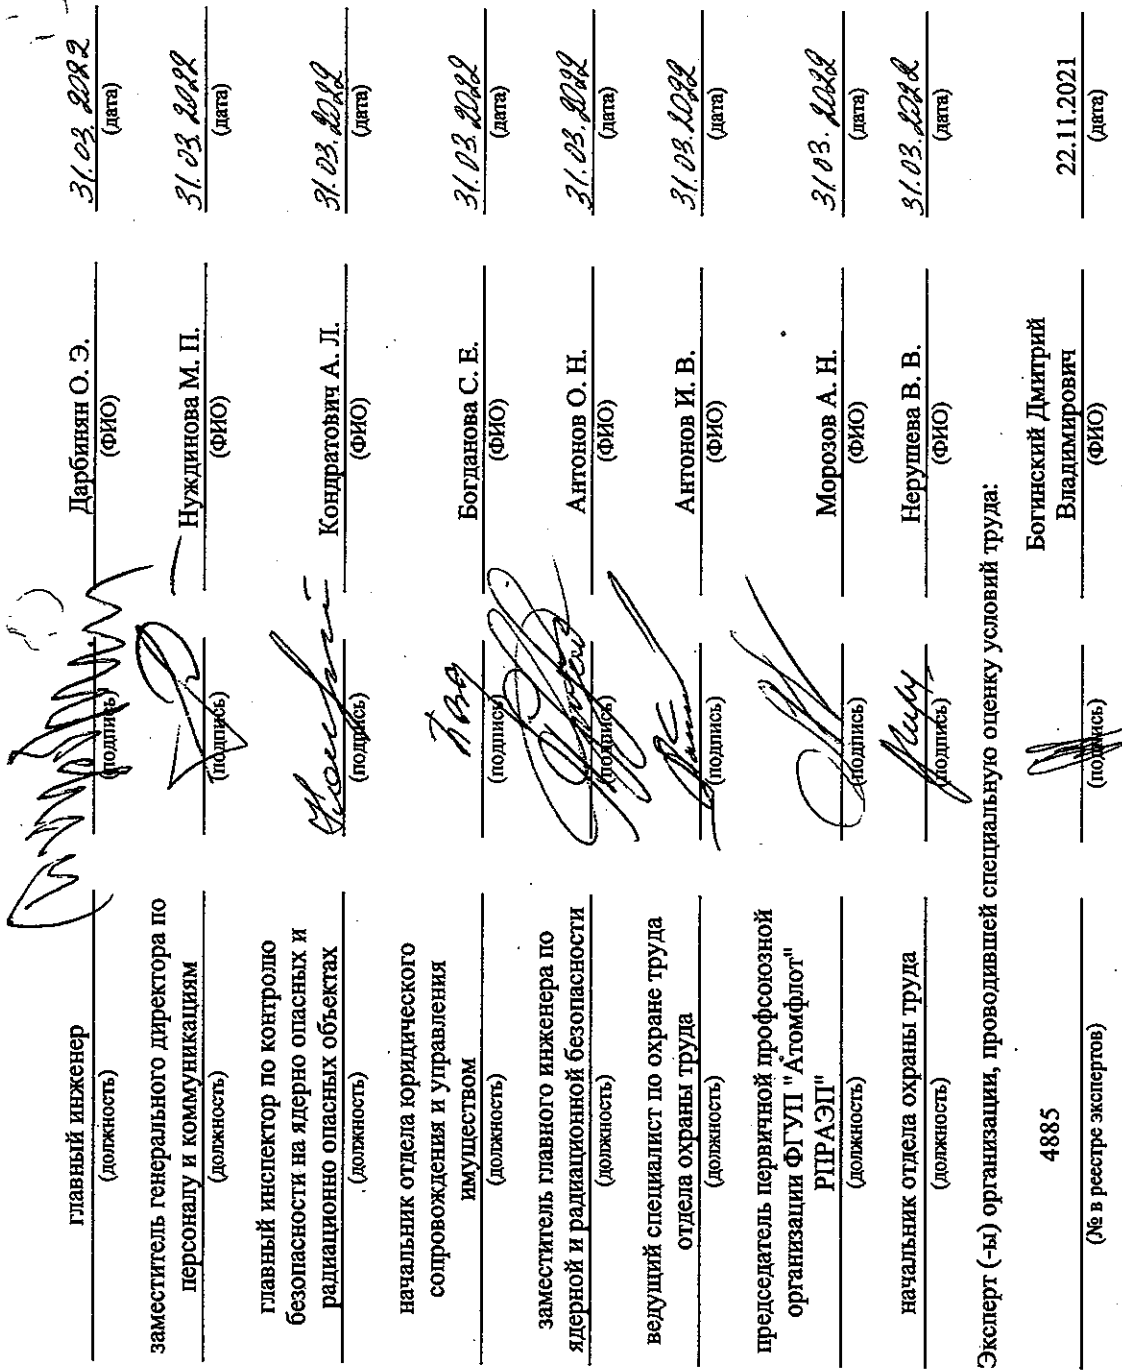 главный инженер Дарбинян О. Э. 31.03.2022
(должность) (подпись) (ФИО) (дата)
заместитель генерального директора по
персоналу и коммуникациям Нуждинова М. П. 31.03.2022
(должность) (подпись) (ФИО) (дата)
главный инспектор по контролю
безопасности на ядерно опасных и
радиационно опасных объектах Кондратович А. Л. 31.03.2022
(должность) (подпись) (ФИО) (дата)
начальник отдела юридического
сопровождения и управления
имуществом Богданова С. Е. 31.03.2022
(должность) (подпись) (ФИО) (дата)
заместитель главного инженера по
ядерной и радиационной безопасности Антонов О. Н. 31.03.2022
(должность) (подпись) (ФИО) (дата)
ведущий специалист по охране труда
отдела охраны труда Антонов И. В. 31.03.2022
(должность) (подпись) (ФИО) (дата)
председатель первичной профсоюзной
организации ФГУП "Атомфлот"
РПРАЭП" Морозов А. Н. 31.03.2022
(должность) (подпись) (ФИО) (дата)
начальник отдела охраны труда Нерушева В. В. 31.03.2022
(должность) (подпись) (ФИО) (дата)
Эксперт (-ы) организации, проводившей специальную оценку условий труда:
Богинский Дмитрий
4885 Владимирович 22.11.2021
(№ в реестре экспертов) (подпись) (ФИО) (дата)